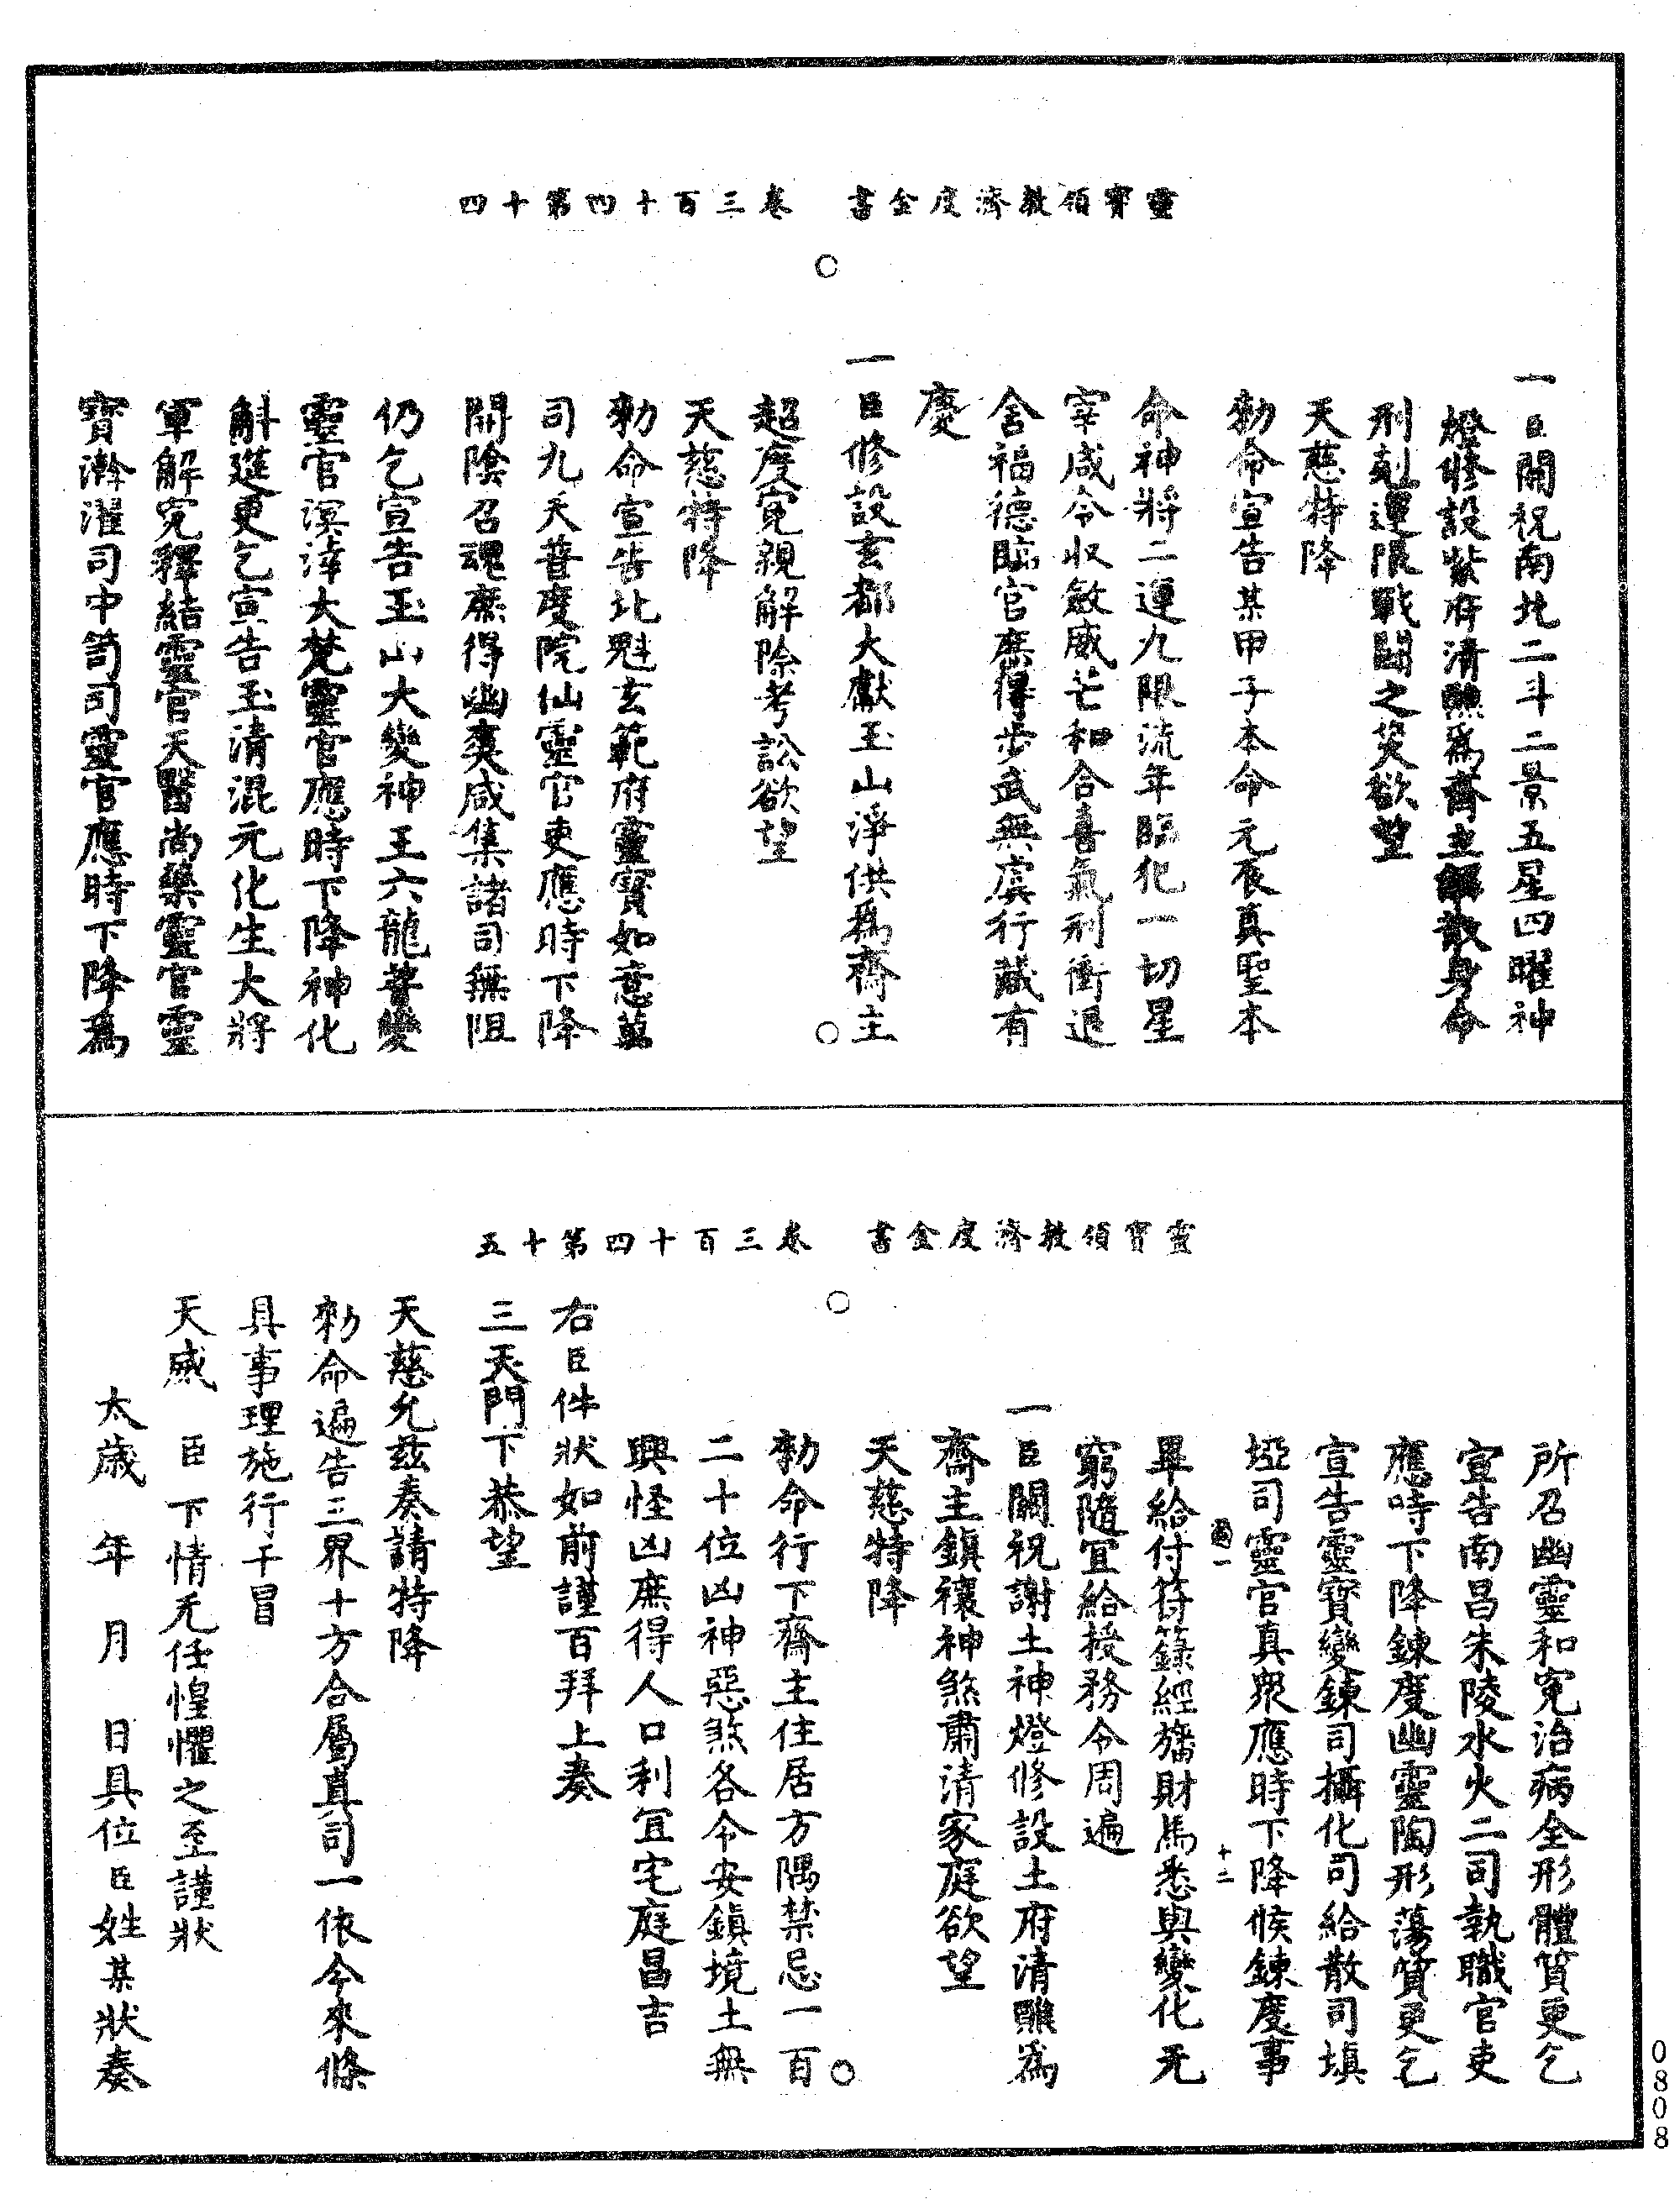 靈寶領教濟度金書　卷三百十四第十四
一臣關祝南北二斗二景五星四曜神
燈修設紫府清醮爲齋主解散身命
刑剋運限戰鬪之災欲望
天慈特降
勑命宣告某甲子本命元辰真聖本
命神將二運九限流年臨犯一切星
宰咸令收斂威芒和合喜氣刑衝退
舍福德臨宮庶得步武無虞行藏有
慶
一臣修設玄都大獻玉山淨供爲齋主
超度寃親解除考訟欲望
天慈特降
勑命宣告北魁玄範府靈寶如意萬
司九天普度院仙靈官吏應時下降
開陰召魂庶得幽爽咸集諸司無阻
仍乞宣告玉山大變神王六龍普變
靈官溟涬大梵靈官應時下降神化
斛筵更乞宣告玉清混元化生大將
軍解寃釋結靈官天醫尚藥靈官靈
寶澣濯司巾笥司靈官應時下降爲
靈寶領教濟度金書　卷三百十四第十五
所召幽靈和寃治病全形體質更乞
宣告南昌朱陵水火二司執職官吏
應時下降鍊度幽靈陶形蕩質更乞
宣告靈寶變鍊司攝化司給散司填
埡司靈官真衆應時下降候鍊度事
十二
畢給付符籙經旛財馬悉與變化无
窮隨宜給授務令周遍
一臣關祝謝土神燈修設土府清醮爲
齋主鎮禳神煞肅清家庭欲望
天慈特降
勑命行下齋主住居方隅禁忌一百
二十位凶神惡煞各令安鎮境土無
興怪凶庶得人口利宜宅庭昌吉
右臣件狀如前謹百拜上奏
三天門下恭望
天慈允茲奏請特降
勑命遍告三界十方合屬真司一依今來條
具事理施行干冒
天威　臣　下情无任惶懼之至謹狀
太歲　年　月　日具位臣姓某狀奏
0808